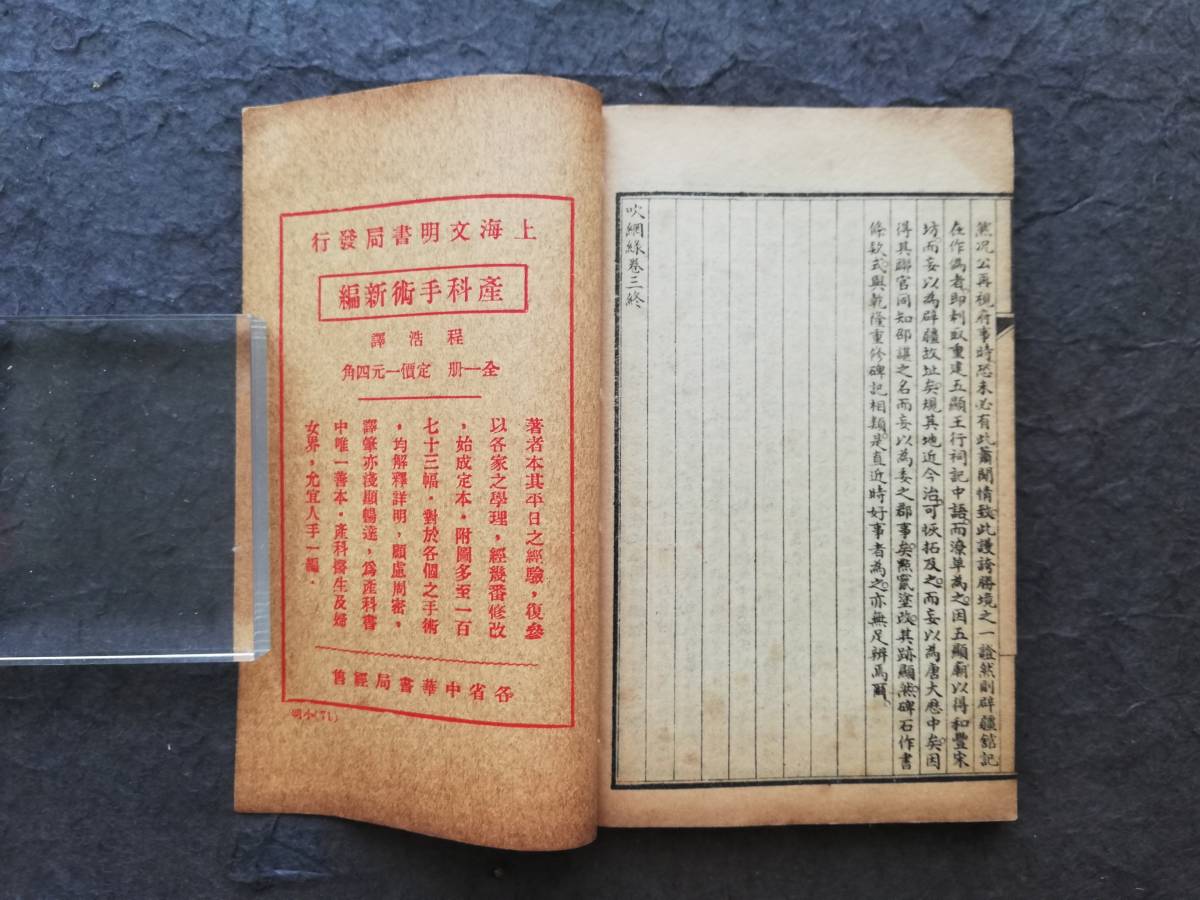 然况公再視府事時恐未必有此蕭閒情致此謾誇勝境之一證然則辟疆館記
在作偽者即刺取重建五顯王行祠記中語而潦草為之因五顯廟以得和豐宋
坊而妄以為辟疆故址矣規其地近今治可恢拓及之而妄以為唐大歷中矣因
得其聯官同知邵諶之名而妄以為委之郡事矣㸃竄塗改其跡顯然碑石作書
條欵式與乾隆重修碑記相類是直近時好事者為之亦無足辨焉爾
吹網錄卷三終
上海文明書局發行
產科手術新編
程浩譯
全一册 定價一元四角
著者本其平日之經驗，復參
以各家之學理，經幾番修改
，始成定本。附圖多至一百
七十三幅。對於各個之手術
，均解釋詳明，顧慮周密，
譯筆亦淺顯暢達，為產科書
中唯一善本。產科醫生及婦
女界，尤宜人手一編。
各省中華書局經售
明小(71)